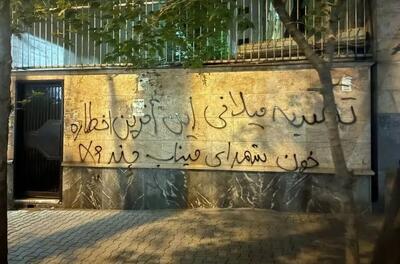 تهمینه میلانی این آخرین اخطاره
خون شهدای میناب چند